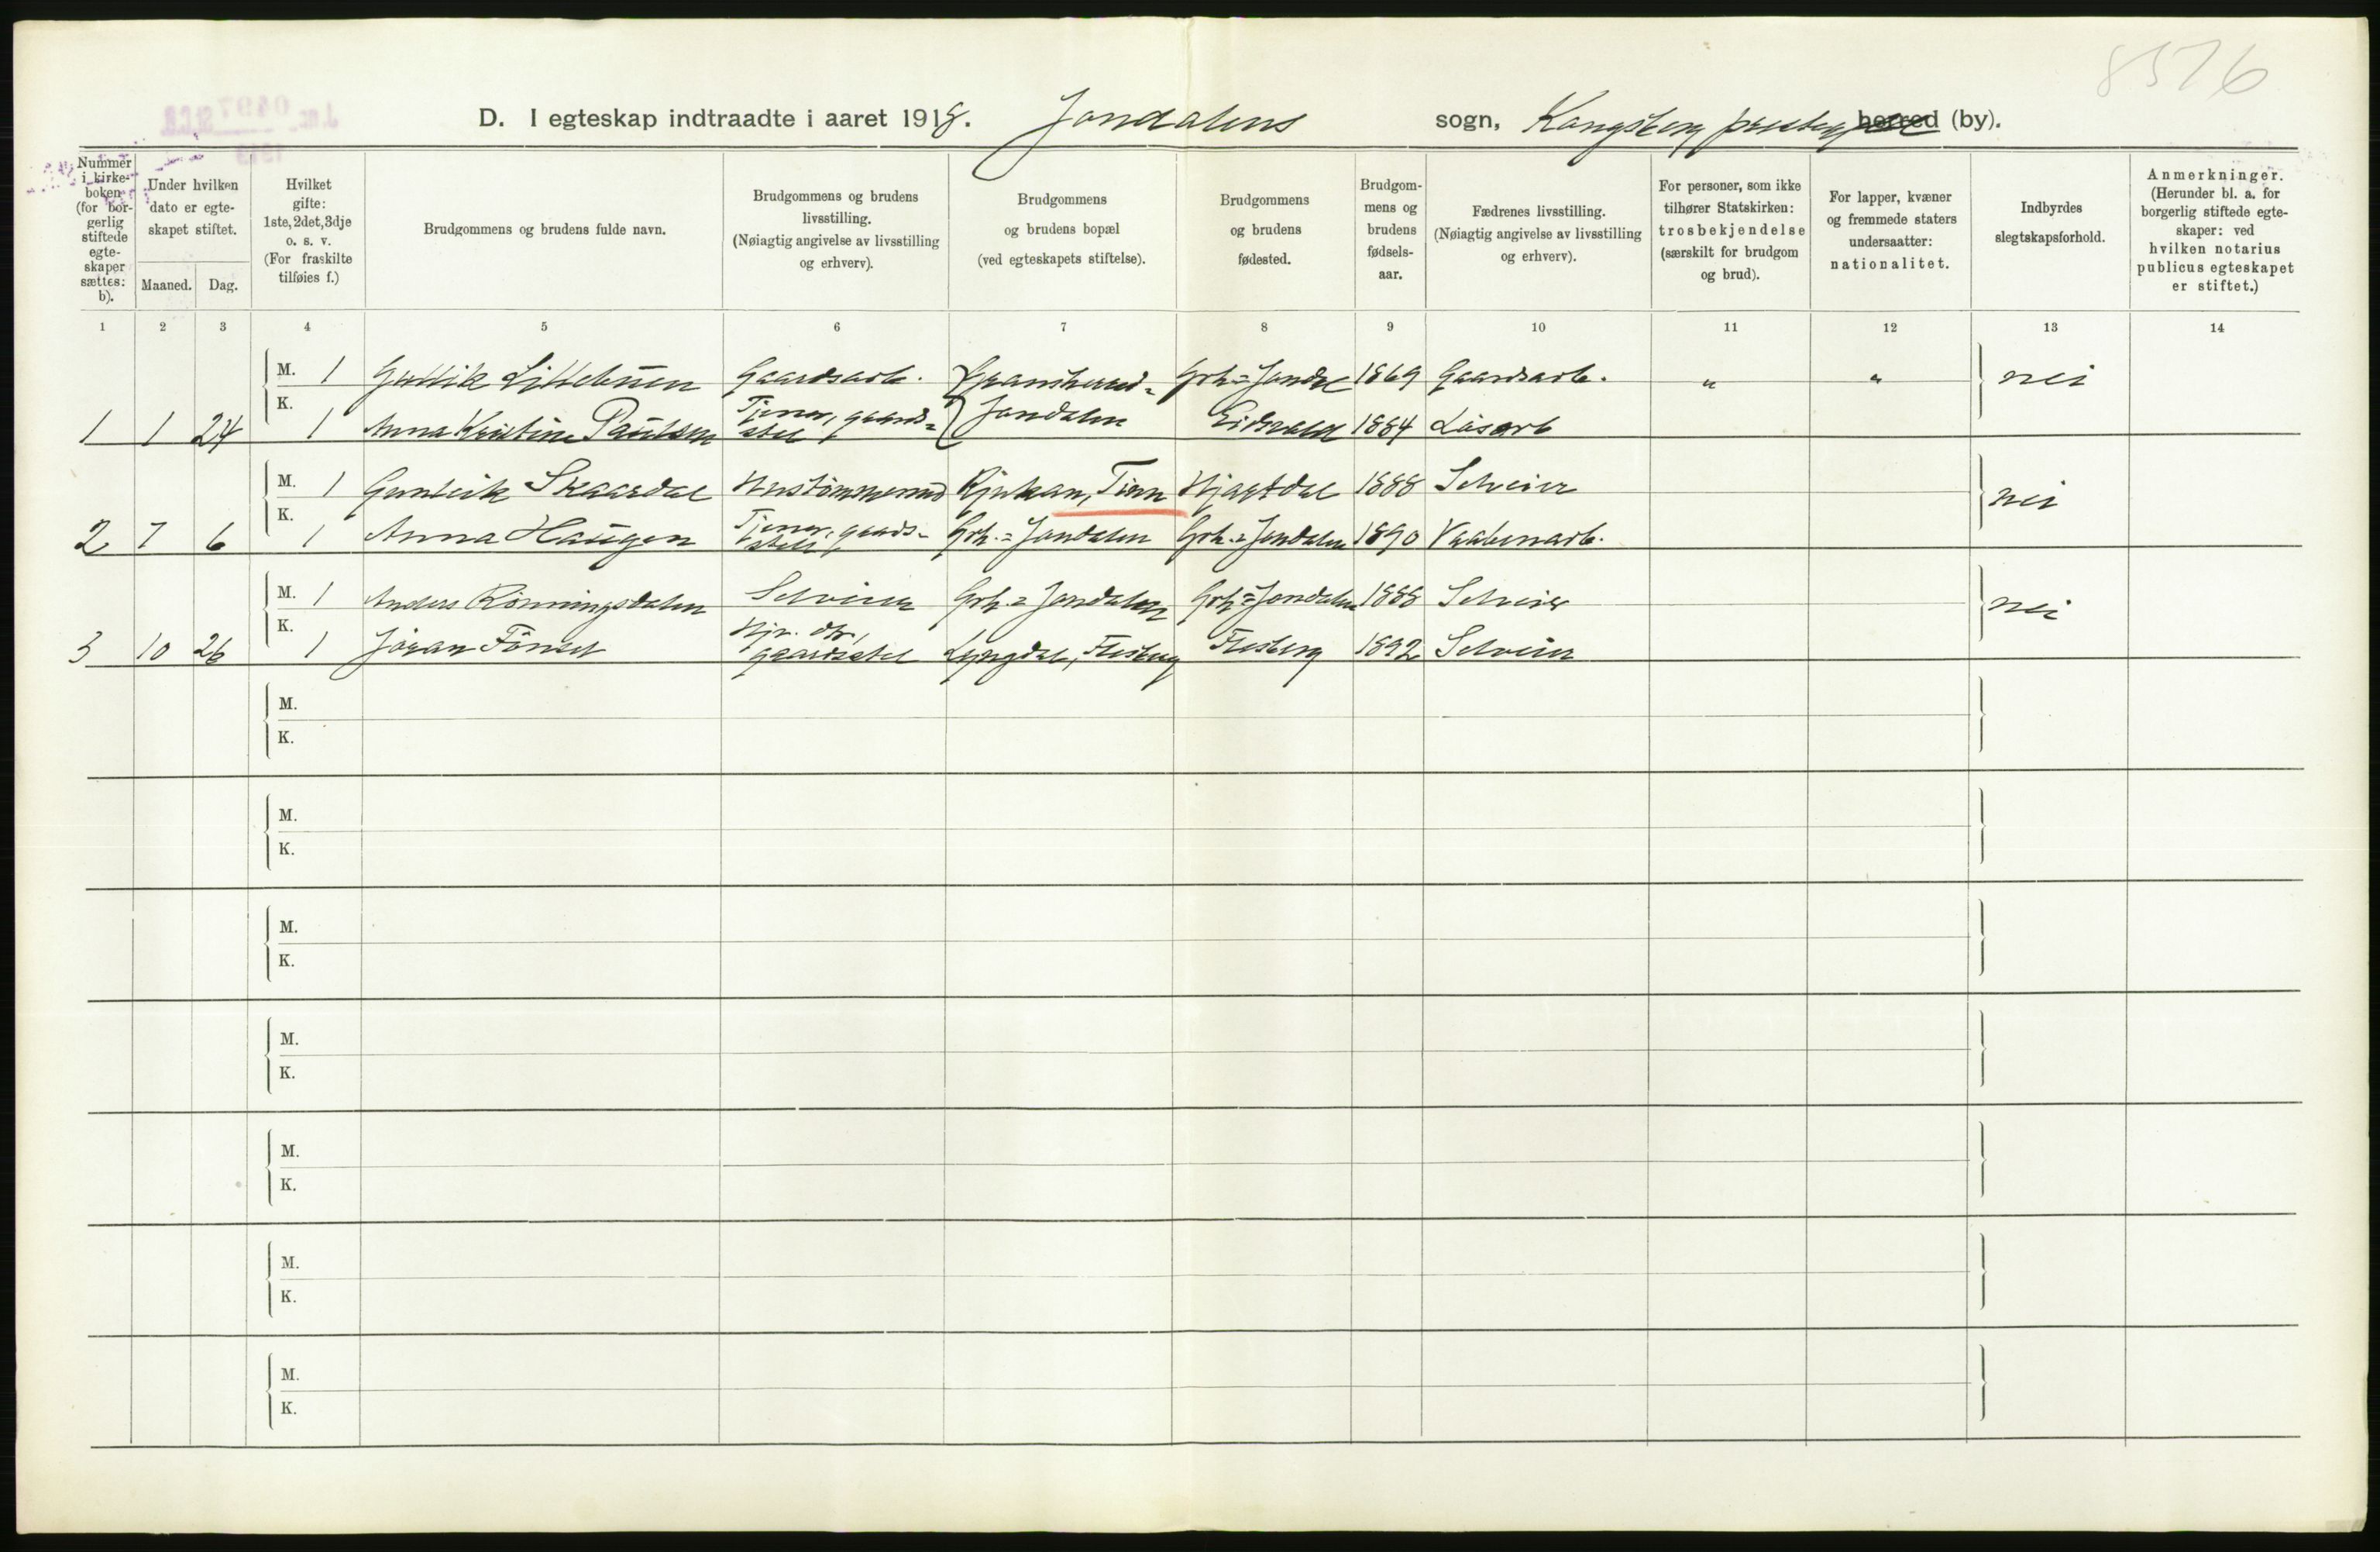 8576
D. I egteskap indtraadte i aaret 1918. Jondalens sogn, Kongsberg herred (by).
Nummer i kirkeboken (for borgerlig stiftede egteskaper sættes: b).
Under hvilken dato er egteskapet stiftet.
Maaned. Dag.
Hvilket gifte: 1ste, 2det, 3dje o. s. v. (For fraskilte tilføies f.)
Brudgommens og brudens fulde navn.
Brudgommens og brudens livsstilling. (Nøiagtig angivelse av livsstilling og erhverv).
Brudgommens og brudens bopæl (ved egteskapets stiftelse).
Brudgommens og brudens fødested.
Brudgommens og brudens fødselsaar.
Fædrenes livsstilling. (Nøiagtig angivelse av livsstilling og erhverv).
For personer, som ikke tilhører Statskirken: trosbekjendelse (særskilt for brudgom og brud).
For lapper, kvæner og fremmede staters undersaatter: nationalitet.
Indbyrdes slegtskapsforhold.
Anmerkninger. (Herunder bl. a. for borgerlig stiftede egteskaper: ved hvilken notarius publicus egteskapet er stiftet.)
1 2 3 4 5 6 7 8 9 10 11 12 13 14
M. 1 Gullik Littebuen Gaardsarb. Grh=Jondal 1869 Gaardsarb. " " nei
1 1 24 K. 1 Anna Kristine Paulsen Tjener, gaardsstel Jondalen Eidsvold 1884 Løsarb
M. 1 Gunleik Skaardal Hustømmermd Rjukan, Tinn Hjartdal 1888 Selveier nei
2 7 6 K. 1 Anna Haugen Tjener, gaardsstell Grh.=Jondalen Grh.=Jondalen 1890 Vaabenarb.
M. 1 Anders Rønningsdalen Selveier Grh.=Jondalen Grh=Jondalen 1888 Selveier nei
3 10 26 K. 1 Jøran Tønset Hjv. dtr, gaardsstel Lyngdal, Flesberg Flesberg 1892 Selveier
M.
K.
M.
K.
M.
K.
M.
K.
M.
K.
M.
K.
M.
K.